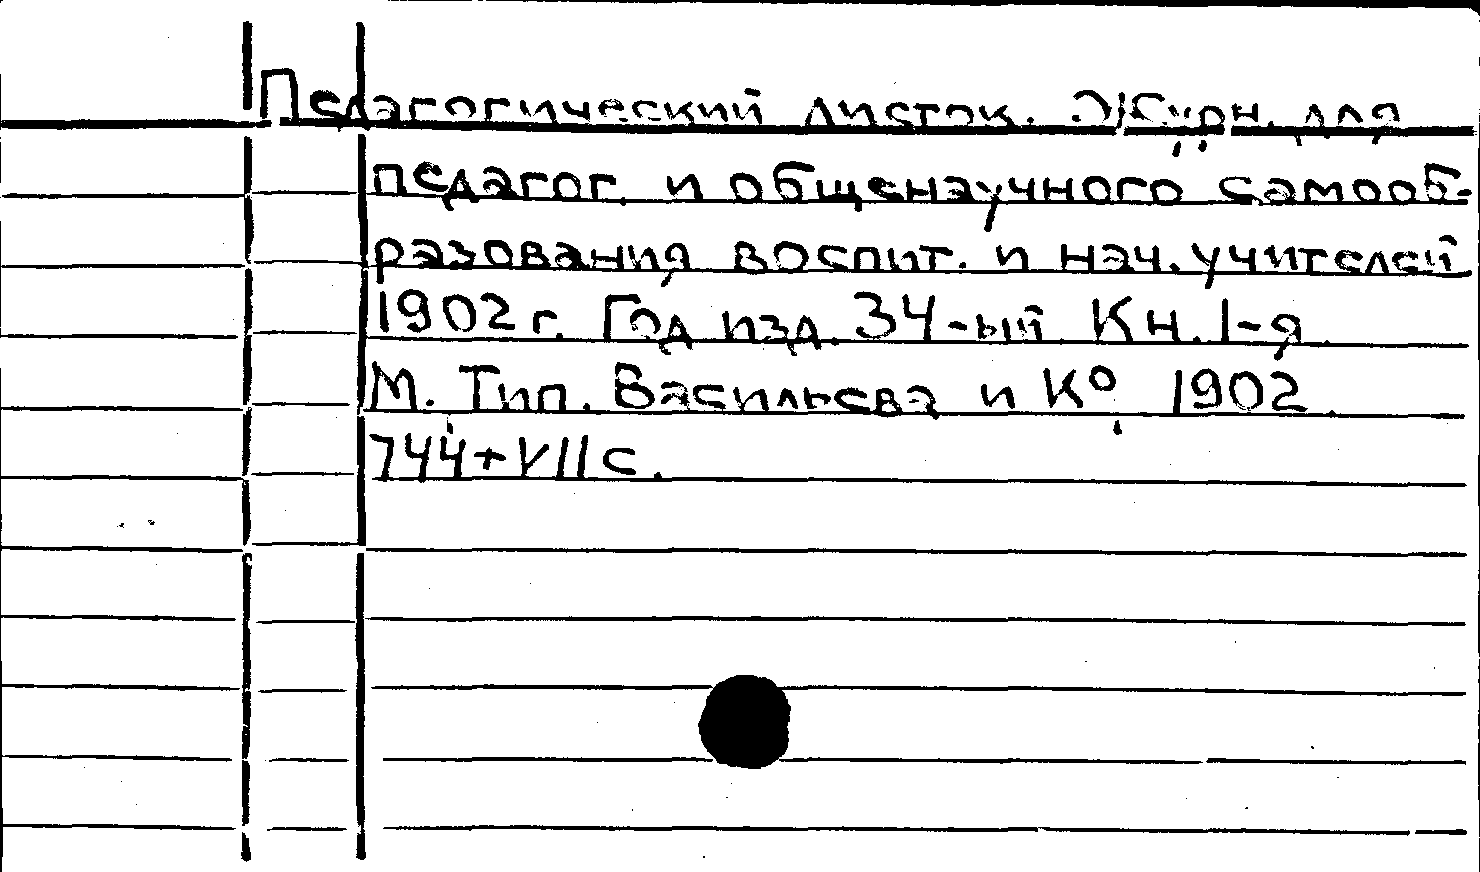 Педагогический листок. Журн. для
педагог. и общенаучного самооб-
разования воспит. и нач. учителей
1902 г. Год изд. 34-ый Кн. 1-я
М. Тип. Васильева и К° 1902.
744+VII с.